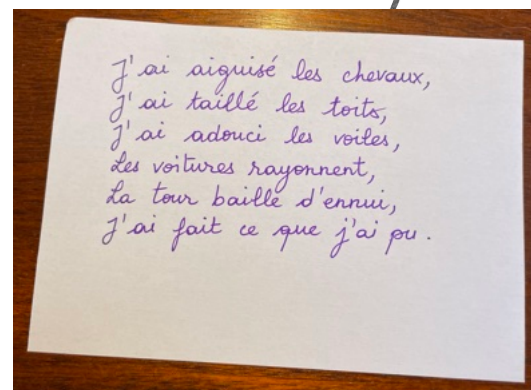 J'ai aiguisé les chevaux,
J'ai taillé les toits,
J'ai adouci les voiles,
Les voitures rayonnent,
La tour baille d'ennui,
J'ai fait ce que j'ai pu.